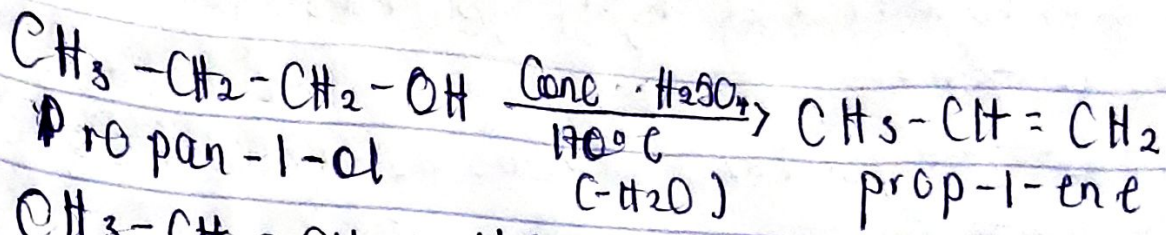 CH₃-CH₂-CH₂-OH Conc. H₂SO₄ → CH₃-CH=CH₂
Propan-1-ol 170°C prop-1-ene
(-H₂O)
CH₃-CH